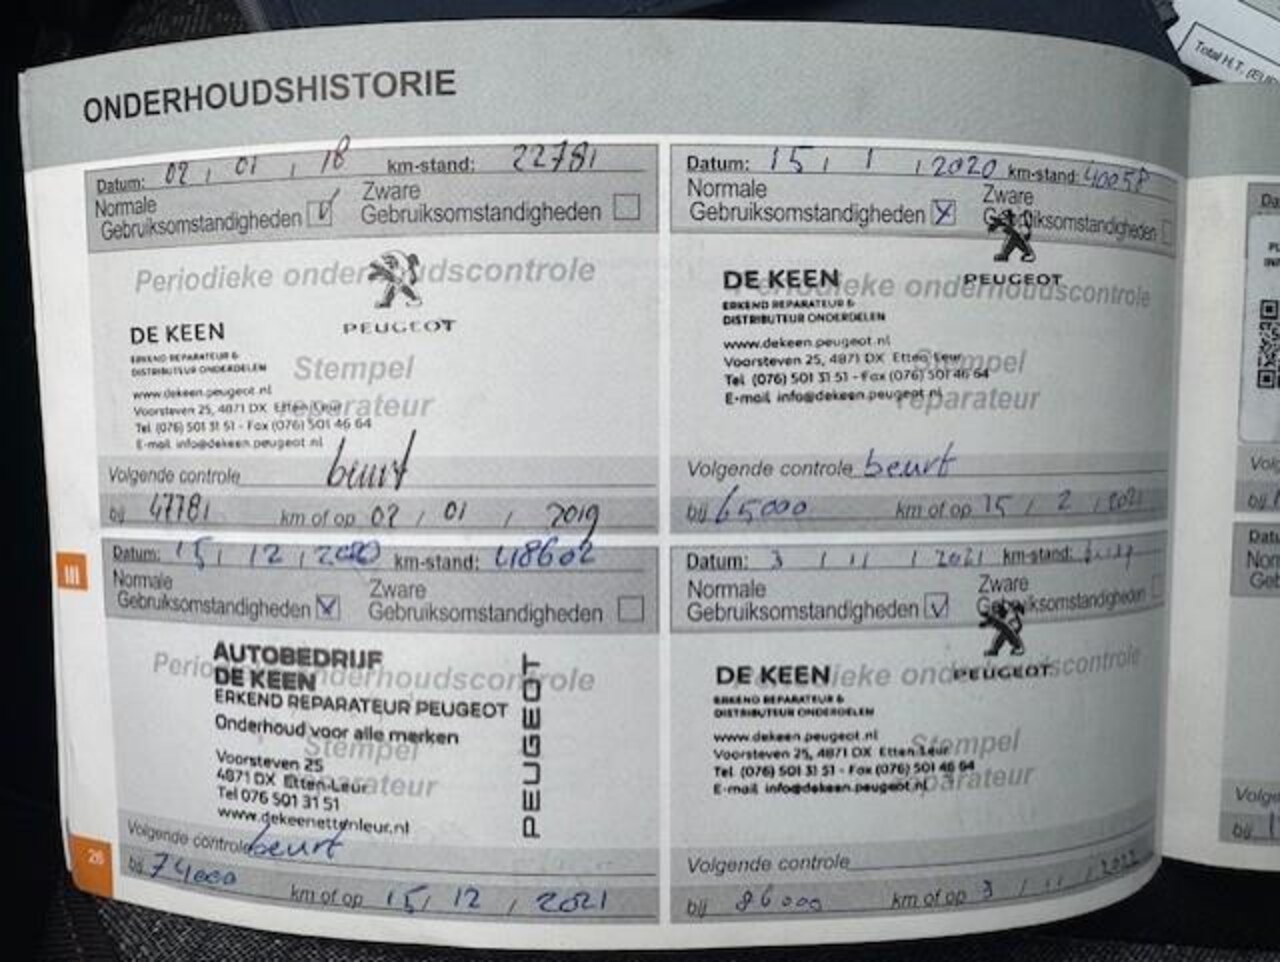 Total H.T. (EUR
ONDERHOUDSHISTORIE
Datum: 02 / 01 / 18 km-stand: 22781
Normale Gebruiksomstandigheden V Zware Gebruiksomstandigheden
Periodieke onderhoudscontrole
PEUGEOT
DE KEEN
ERKEND REPARATEUR &
DISTRIBUTEUR ONDERDELEN
Stempel
reparateur
www.dekeen.peugeot.nl
Voorsteven 25, 4871 DX Etten-Leur
Tel (076) 501 31 51 - Fax (076) 501 46 64
E-mail info@dekeen.peugeot.nl
Volgende controle beurt
bij 47781 km of op 02 / 01 / 2019
Datum: 15 / 1 / 2020 km-stand: 40058
Normale Gebruiksomstandigheden X Zware Gebruiksomstandigheden
Periodieke onderhoudscontrole
PEUGEOT
DE KEEN
ERKEND REPARATEUR &
DISTRIBUTEUR ONDERDELEN
www.dekeen.peugeot.nl
Voorsteven 25, 4871 DX Etten-Leur
Tel (076) 501 31 51 - Fax (076) 501 46 64
E-mail info@dekeen.peugeot.nl
Stempel
reparateur
Volgende controle beurt
bij 65000 km of op 15 / 2 / 2021
Datum: 15 / 12 / 2020 km-stand: 48602
Normale Gebruiksomstandigheden X Zware Gebruiksomstandigheden
Periodieke onderhoudscontrole
AUTOBEDRIJF
DE KEEN
ERKEND REPARATEUR PEUGEOT
Onderhoud voor alle merken
Stempel
reparateur
Voorsteven 25
4871 DX Etten-Leur
Tel 076 501 31 51
www.dekeenettenleur.nl
PEUGEOT
Volgende controle beurt
bij 74000 km of op 15 / 12 / 2021
Datum: 3 / 11 / 2021 km-stand:
Normale Gebruiksomstandigheden V Zware Gebruiksomstandigheden
Periodieke onderhoudscontrole
PEUGEOT
DE KEEN
ERKEND REPARATEUR &
DISTRIBUTEUR ONDERDELEN
www.dekeen.peugeot.nl
Voorsteven 25, 4871 DX Etten-Leur
Tel (076) 501 31 51 - Fax (076) 501 46 64
E-mail info@dekeen.peugeot.nl
Stempel
reparateur
Volgende controle
bij 86000 km of op 3 / 11 / 2022
III
26